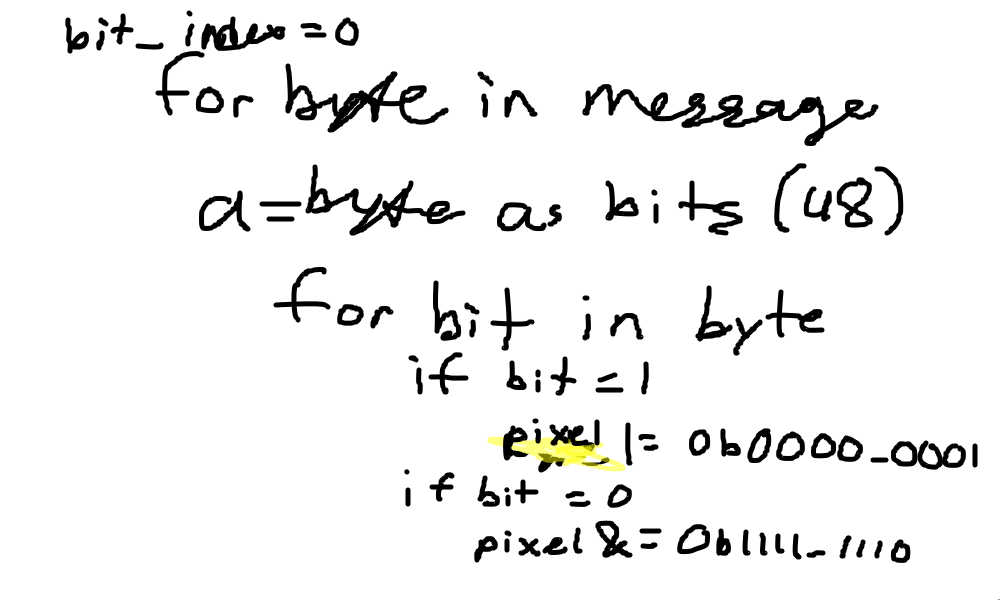 bit_index=0
for byte in message
a=byte as bits (48)
for bit in byte
if bit = 1
pixel |= 0b0000_0001
if bit = 0
pixel &= 0b1111_1110